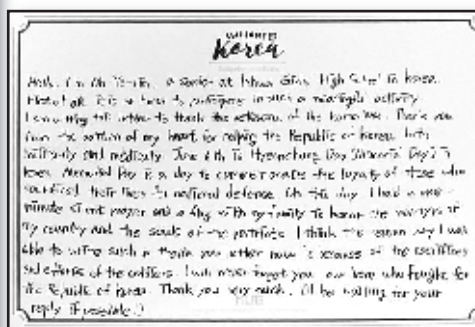 Korea
Hello. I'm Oh , a senior at Girls' High School in Korea.
First of all, it is an honor to participate in such a meaningful activity.
I am writing this letter to thank the veterans of the Korean War. Thank you
from the bottom of my heart for helping the Republic of Korea both
militarily and medically. June 6th is Hyeonchung Day (Memorial Day) in
Korea. Memorial Day is a day to commemorate the loyalty of those who
sacrificed their lives in national defense. On this day, I had a one-
minute silent prayer and a flag with my family to honor the martyrs of
my country and the souls of the patriots. I think the reason why I was
able to write such a thank you letter now is because of the sacrifices
and efforts of the soldiers. I will never forget you, our hero who fought for
the Republic of Korea. Thank you very much. I'll be waiting for your
reply if possible :)